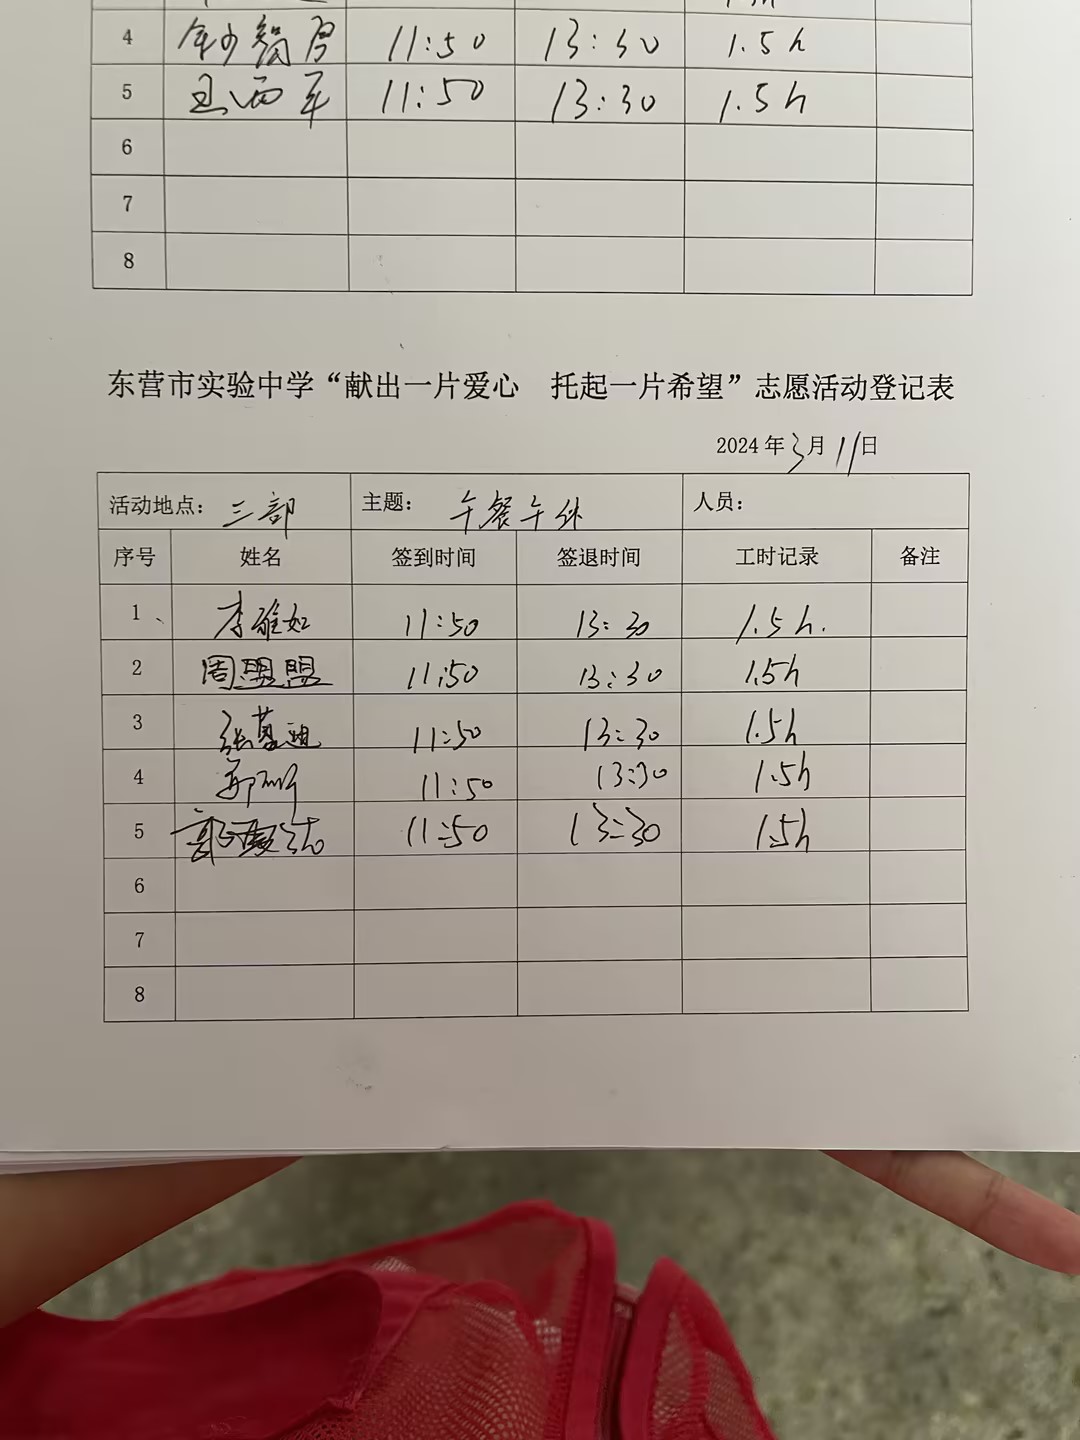 4 11:50 13:30 1.5h
5 王西军 11:50 13:30 1.5h
6
7
8
东营市实验中学“献出一片爱心 托起一片希望”志愿活动登记表
2024年3月11日
活动地点：三部 主题：午餐午休 人员：
序号 姓名 签到时间 签退时间 工时记录 备注
1 李雅如 11:50 13:30 1.5h.
2 周盟盟 11:50 13:30 1.5h
3 11:50 13:30 1.5h
4 11:50 13:30 1.5h
5 11:50 13:30 1.5h
6
7
8